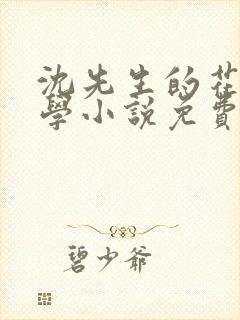 沈先生的花
學小說免費
碧少爺